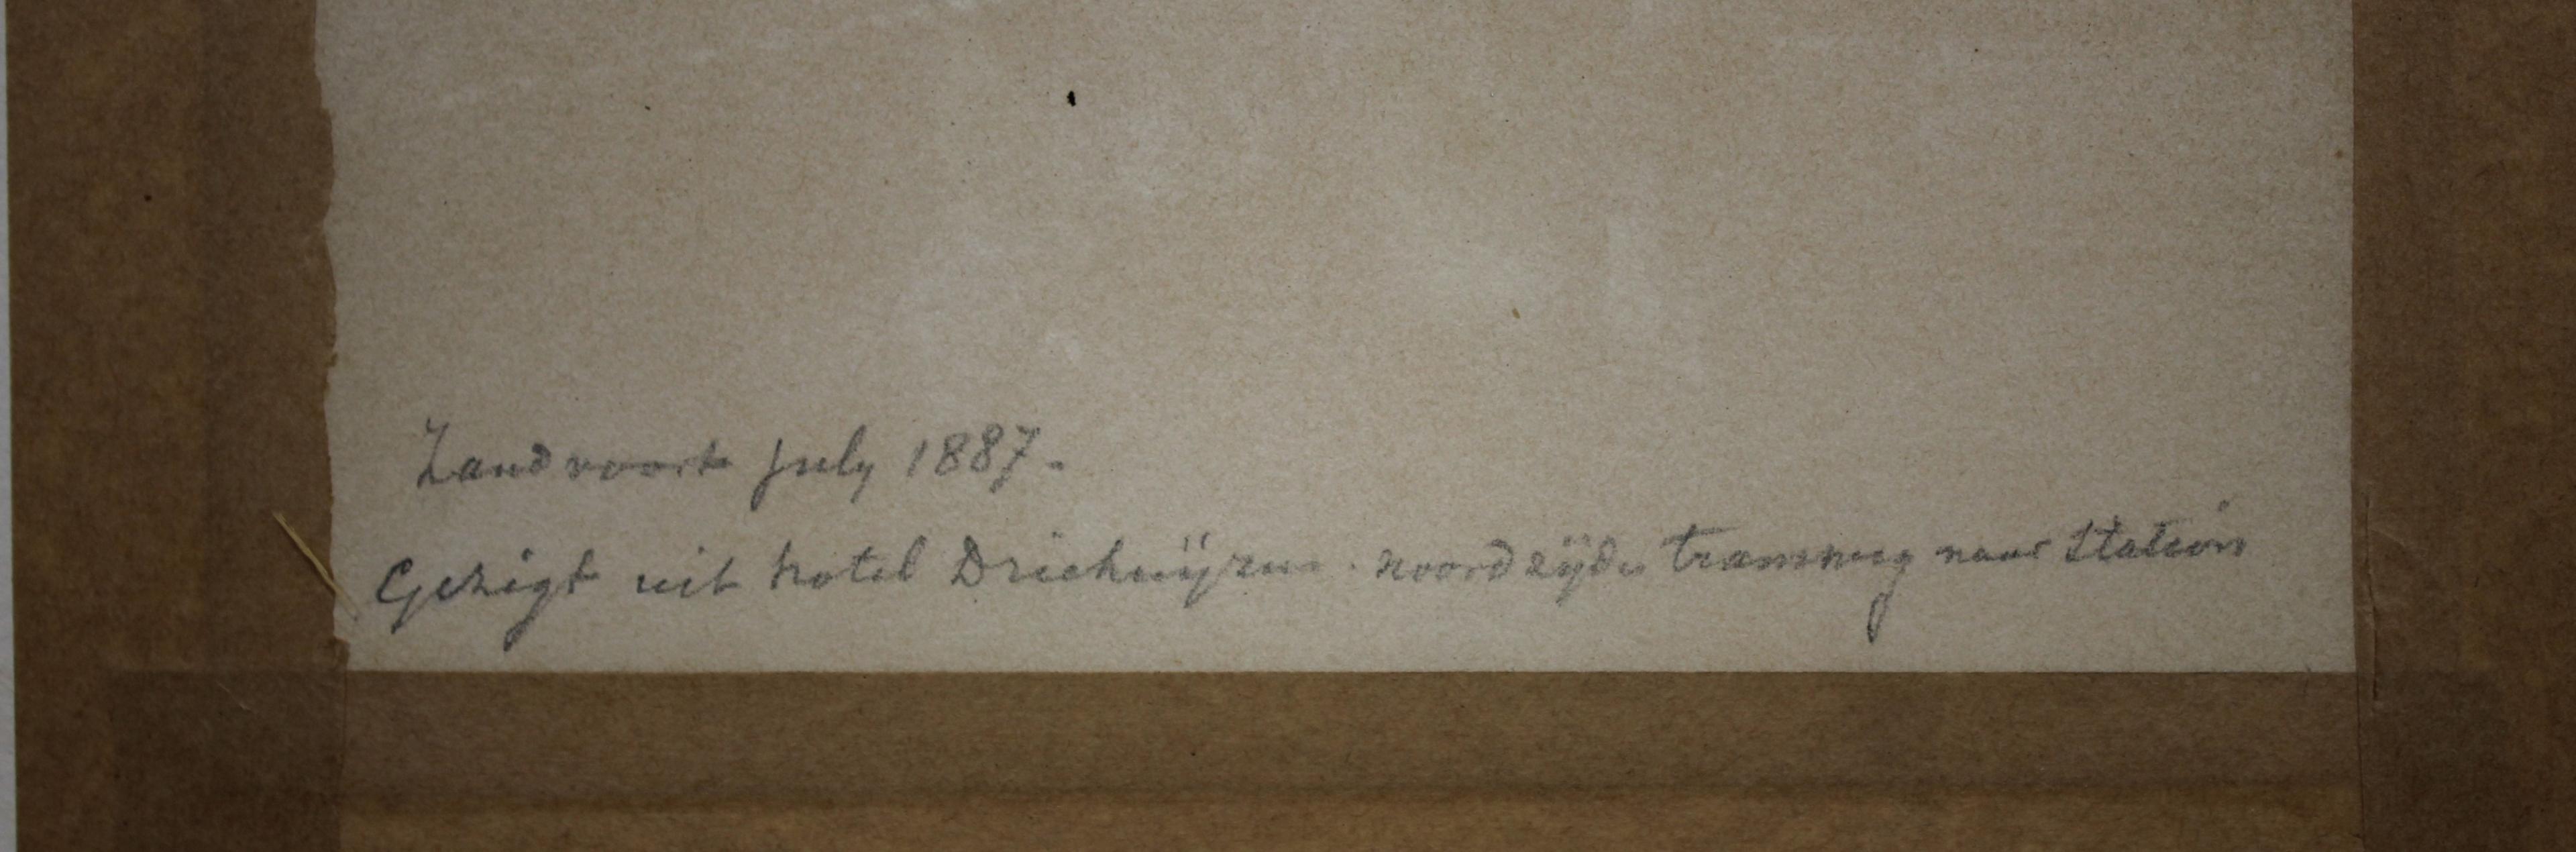 Zandvoort july 1887.-
Gezigt uit hotel Driehuÿzen. noordzÿde tramweg naar Station